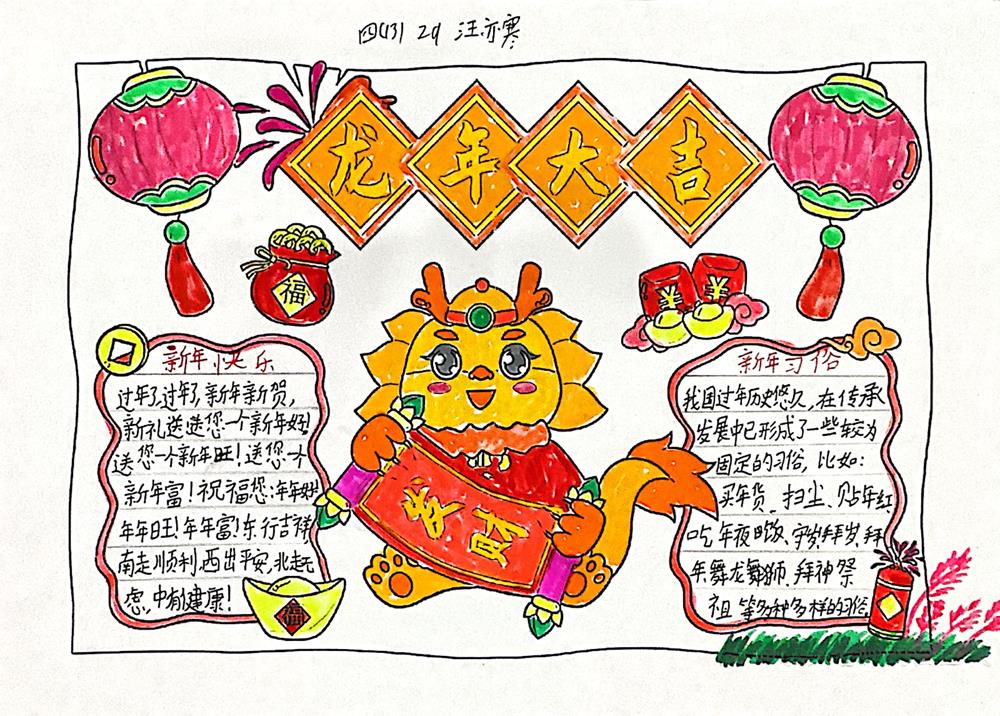 四(3) 29 汪亦寒
龙年大吉
福
新年快乐
过年了,过年了,新年新贺,
新礼送送您一个新年好!
送您一个新年旺!送您一个
新年富!祝福您:年年好!
年年旺!年年富!东行吉祥
南走顺利,西出平安,北走无
虑,中有健康!
福
发财
新年习俗
我国过年历史悠久,在传承
发展中已形成了一些较为
固定的习俗,比如:
买年货、扫尘、贴年红
吃年夜饭、守岁、拜岁、拜
年、舞龙舞狮、拜神祭
祖、等多种多样的习俗。
¥ ¥